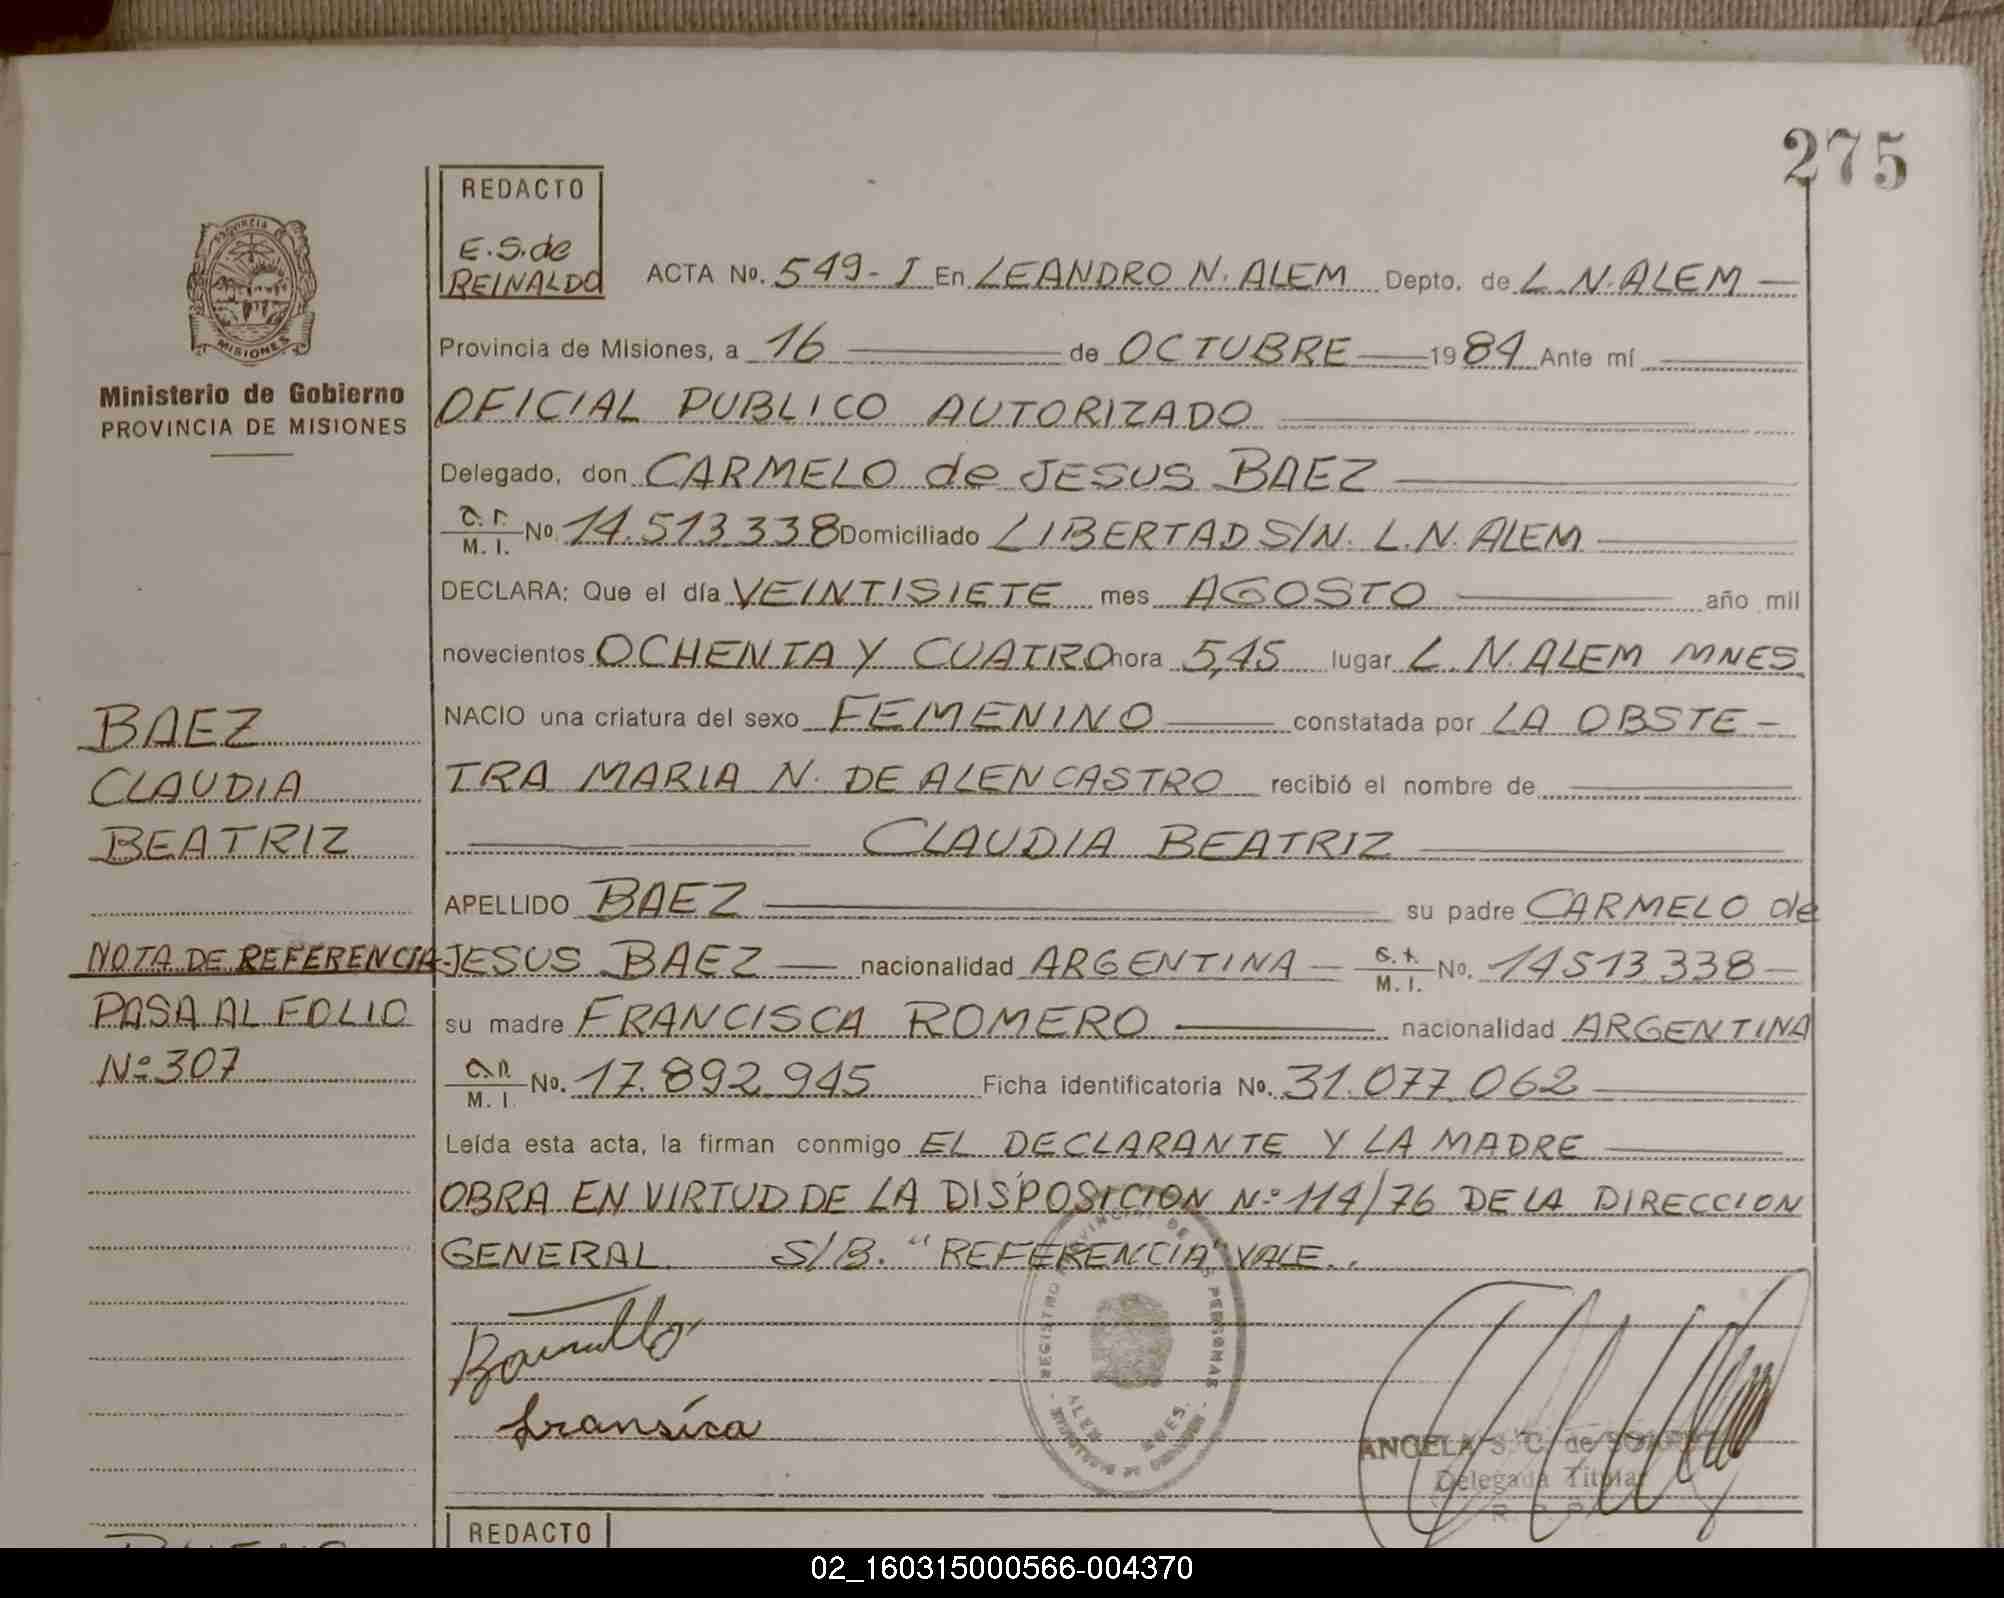 275
REDACTO
E.S.de
REINALDO
PROVINCIA
MISIONES
Ministerio de Gobierno
PROVINCIA DE MISIONES
ACTA No. 549-I En LEANDRO N. ALEM Depto. de L.N.ALEM —
Provincia de Misiones, a 16 — de OCTUBRE — 1984 Ante mí —
OFICIAL PUBLICO AUTORIZADO —
Delegado, don CARMELO de JESUS BAEZ —
M. I. No. 14.513.338 Domiciliado LIBERTAD S/N. L.N. ALEM —
DECLARA: Que el día VEINTISIETE mes AGOSTO — año mil
novecientos OCHENTA Y CUATRO hora 5,45 lugar L.N.ALEM MNES
NACIO una criatura del sexo FEMENINO — constatada por LA OBSTE-
TRA MARIA N. DE ALENCASTRO recibió el nombre de —
— CLAUDIA BEATRIZ —
APELLIDO BAEZ — su padre CARMELO de
JESUS BAEZ — nacionalidad ARGENTINA — M. I. No. 14513.338 —
su madre FRANCISCA ROMERO — nacionalidad ARGENTINA
M. I. No. 17.892.945 Ficha identificatoria No. 31.077.062 —
Leída esta acta, la firman conmigo EL DECLARANTE Y LA MADRE —
OBRA EN VIRTUD DE LA DISPOSICION Nº 114/76 DE LA DIRECCION
GENERAL. S/B. "REFERENCIA" VALE..
BAEZ
CLAUDIA
BEATRIZ
NOTA DE REFERENCIA
PASA AL FOLIO
Nº 307
REGISTRO PROVINCIAL DE LAS PERSONAS
ALEM MNES.
ANGELA S. C. de
Delegada Titular
REDACTO
02_160315000566-004370